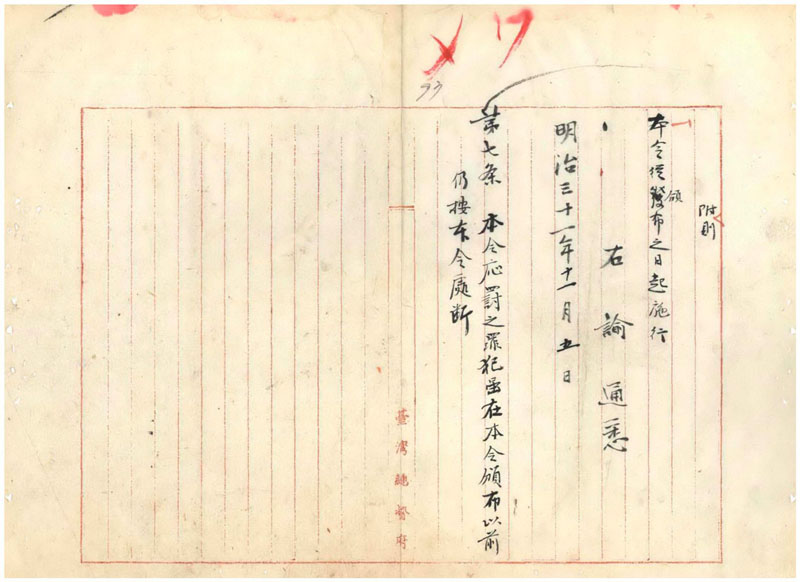 附則
本令從頒發布之日起施行
右諭通悉
明治三十一年十一月五日
第七条　本令応罰之罪犯虽在本令頒布以前
仍按本令處断
臺灣總督府